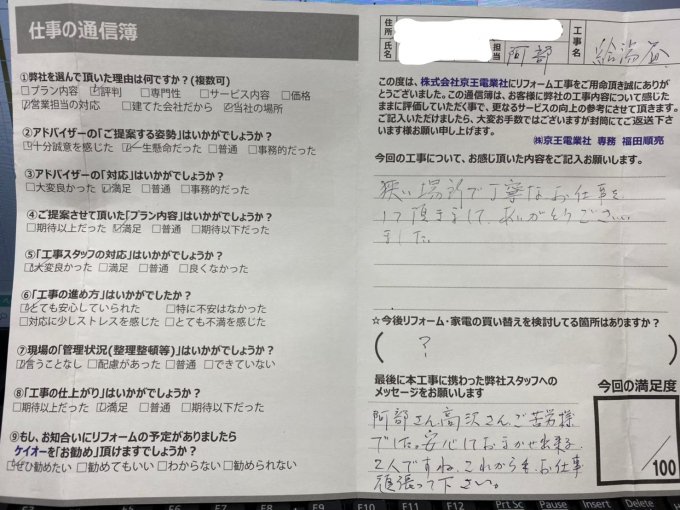 仕事の通信簿
①弊社を選んで頂いた理由は何ですか？(複数可)
□プラン内容 ☑評判 □専門性 □サービス内容 □価格
☑営業担当の対応 □建てた会社だから ☑当社の場所
②アドバイザーの「ご提案する姿勢」はいかがでしょうか？
☑十分誠意を感じた ☑一生懸命だった □普通 □事務的だった
③アドバイザーの「対応」はいかがでしょうか？
□大変良かった ☑満足 □普通 □事務的だった
④ご提案させて頂いた「プラン内容」はいかがでしょうか？
□期待以上だった ☑満足 □普通 □期待以下だった
⑤「工事スタッフの対応」はいかがでしょうか？
☑大変良かった □満足 □普通 □良くなかった
⑥「工事の進め方」はいかがでしたか？
☑とても安心していられた □特に不安はなかった
□対応に少しストレスを感じた □とても不満を感じた
⑦現場の「管理状況(整理整頓等)」はいかがでしょうか？
☑言うことなし □配慮があった □普通 □できていない
⑧「工事の仕上がり」はいかがでしょうか？
□期待以上だった ☑満足 □普通 □期待以下だった
⑨もし、お知合いにリフォームの予定がありましたら
ケイオーを「お勧め」頂けますでしょうか？
☑ぜひ勧めたい □勧めてもいい □わからない □勧められない
住所
氏名
担当 阿部
工事名 給湯器
この度は、株式会社京王電業社にリフォーム工事をご用命頂き誠にありが
とうございました。この通信簿は、お客様に弊社の工事内容について感じた
ままに評価していただく事で、更なるサービスの向上の参考にさせて頂きます。
ご記入いただけましたら、大変お手数ではございますが封筒にてご返送下さ
います様お願い申し上げます。
㈱京王電業社 専務 福田順亮
今回の工事について、お感じ頂いた内容をご記入お願いします。
狭い場所で丁寧なお仕事を
して頂きまして、ありがとうござい
ました。
☆今後リフォーム・家電の買い替えを検討してる箇所はありますか？
( ? )
最後に本工事に携わった弊社スタッフへの
メッセージをお願いします
阿部さん、高沢さん、ご苦労様
でした。安心しておまかせ出来る
2人ですね。これからも、お仕事
頑張って下さい。
今回の満足度
/100
F3 F4 F5 F6 F7 F8 F9 F10 F11 F12 Prt Sc Pause Insert Delete